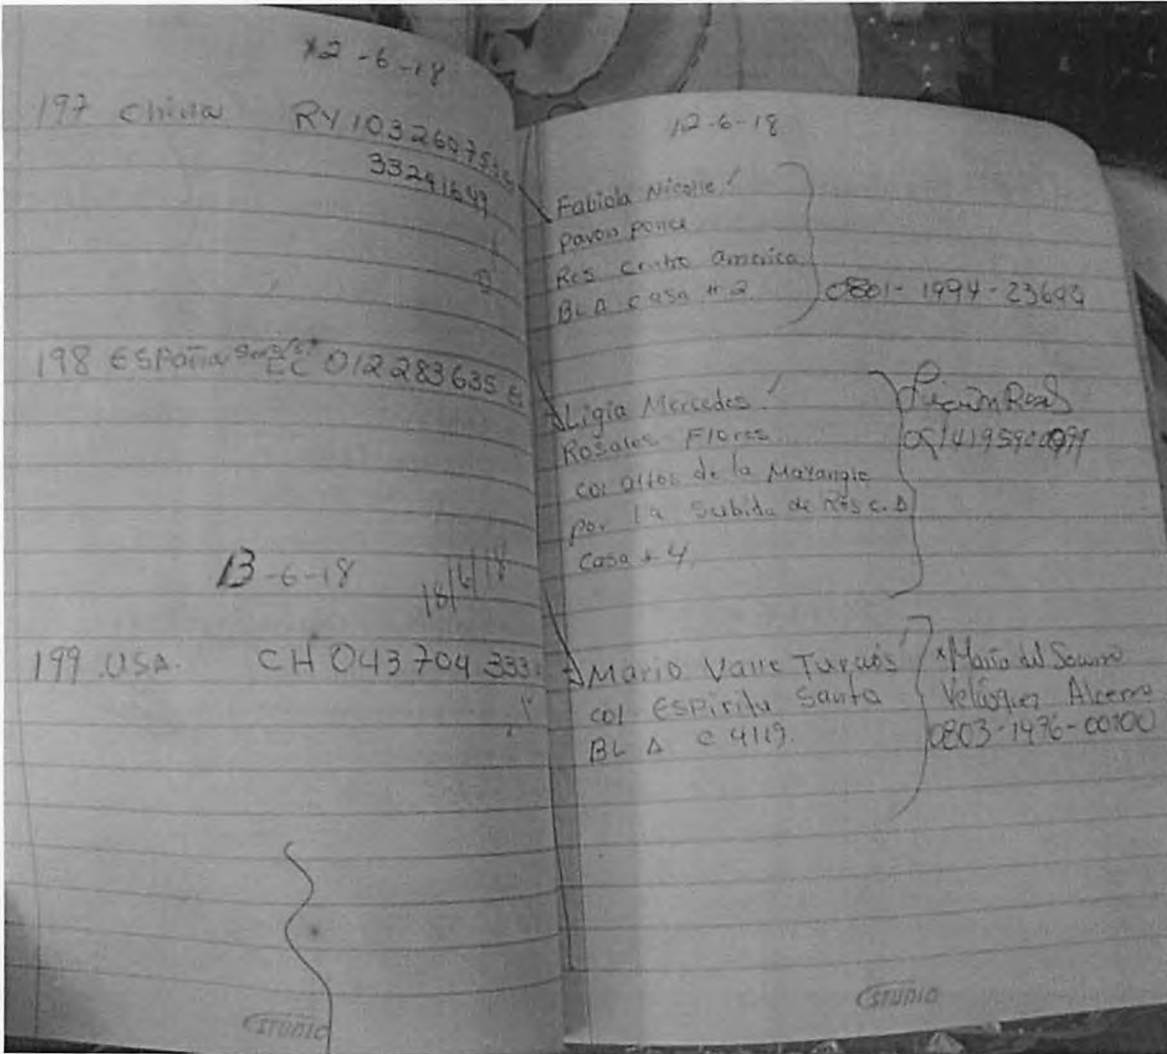 12-6-18
197 China RY103260755
33241649
198 España CC 012283635
13-6-18 18/6/18
199 USA. CH 043704333
STUDIO
12-6-18
Fabiola Nicolle
pavon ponce
Res centro america
BL A casa # 2 0801-1994-23690
Ligia Mercedes
Rosales Flores
col altos de la
por la Subida de Res c. A
Casa # 4
Mario Valle Turcios
col Espiritu Santo
BL A C 4119.
María del Socorro
Velásquez
0803-1976-00100
STUDIO